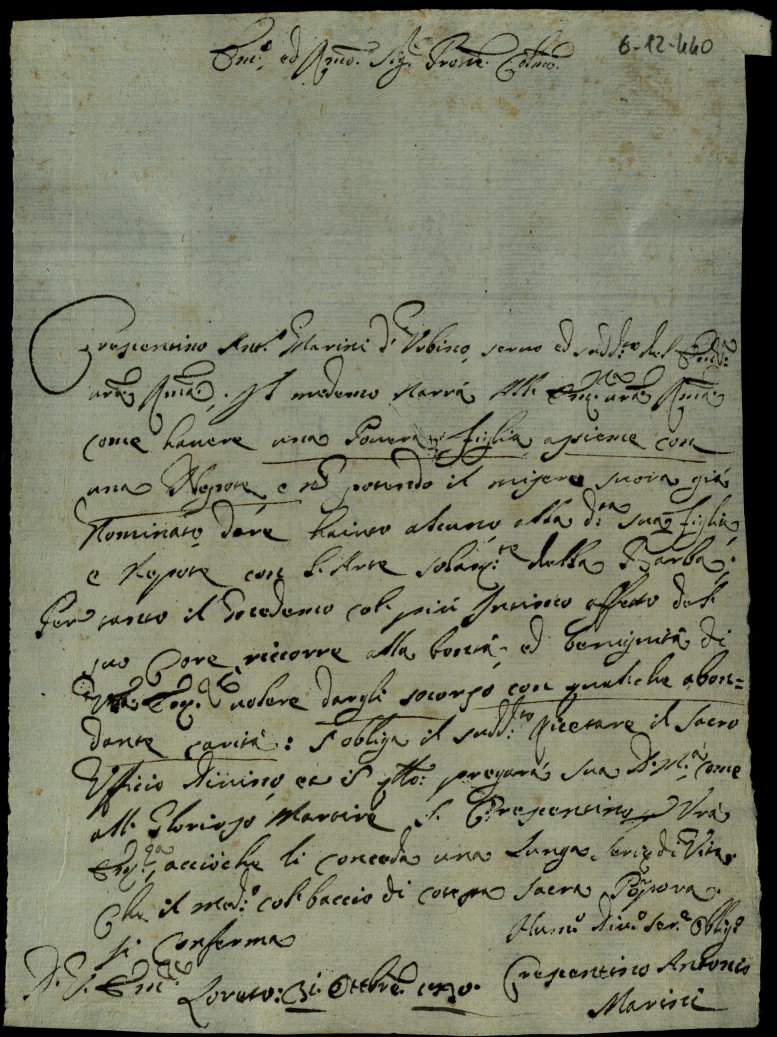 6-12-440
Em.o ed R.mo Sig.e Prone Colmo
Crescentino Ant.o Marini d'Urbino, servo ed sudd.to del Em.za
vra R.ma. Il medemo narra all' Em.za vra R.ma
come havere una Povera figlia assieme con
una Nepote, e no potendo il misero suora già
Nominato dare haiuto alcuno alla d.ta sua figlia
e Nepote con l'Arte solam.te della Barba.
Per tanto il medemo col più Intimo affetto del
suo Core ricorre alla bontà ed benignità di
Vra Em.za volere dargli socorso con qualche abon=
dante carità: s'obliga il sudd.to recitare il Sacro
Ufficio Divino, et pregarà sua D. M.tà come
all Glorioso Martire S. Crescentino p Vra
Em.za acciòche li conceda una Lunga serie di Vita.
Che il med.o col baccio di cotesta Sacra Porpora
si conferma
D. V. Em.za
Humo Divo ser.e Obligo
Loreto: 31 Ottbre
Crescentino Antonio
Marini